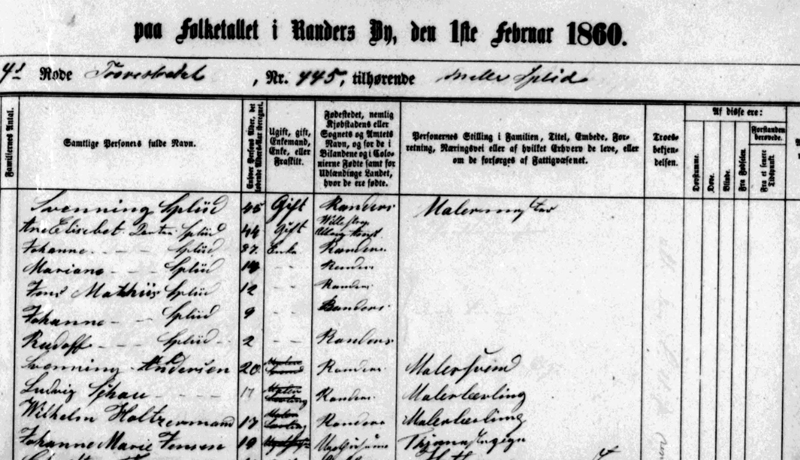 paa Folketallet i Randers By, den 1ste Februar 1860.
4de Rode Torvestrædet, Nr. 445, tilhørende Maler Spliid
Familiernes Antal.
Samtlige Personers fulde Navn.
Ugift, gift, Enkemand, Enke, eller Fraskilt.
Fødestedet, nemlig Kjøbstadens eller Sognets og Amtets Navn, og for de i Bilandene og i Colonierne Fødte samt for Udlændinge Landet, hvor de ere fødte.
Personernes Stilling i Familien, Titel, Embede, Forretning, Næringsvei eller af hvilket Erhverv de leve, eller om de forsørges af Fattigvæsenet.
Troesbekjendelsen.
Af disse ere:
Døvstumme.
Døve.
Blinde.
Forstanden berøvede.
Fra Fødselen.
Fra et senere Tidspunkt.
Svenning Spliid 45 Gift Randers Malermester
Ane Elisabet Spliid 44 Gift
Johanne - - Spliid 87 Enke Randers
Mariane - - Spliid 14 - - Randers
Jens Mathiis Spliid 12 - - Randers
Johanne - - Spliid 9 - - Randers
Rudolf - - Spliid 2 - - Randers
Svenning Andersen 20 Randers Malersvend
Ludvig Schau 17 Randers Malerlærling
Wilhelm Holtzermand 17 Randers Malerlærling
Johanne Marie Jensen 19 Tjenestepige